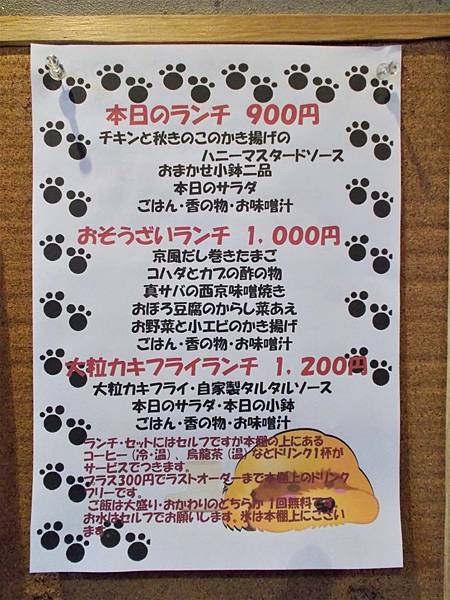 本日のランチ 900円
チキンと秋きのこのかき揚げの
ハニーマスタードソース
おまかせ小鉢二品
本日のサラダ
ごはん・香の物・お味噌汁
おそうざいランチ 1,000円
京風だし巻きたまご
コハダとカブの酢の物
真サバの西京味噌焼き
おぼろ豆腐のからし菜あえ
お野菜と小エビのかき揚げ
ごはん・香の物・お味噌汁
大粒カキフライランチ 1,200円
大粒カキフライ・自家製タルタルソース
本日のサラダ・本日の小鉢
ごはん・香の物・お味噌汁
ランチ・セットにはセルフですが本棚の上にある
コーヒー(冷・温)、烏龍茶(温)などドリンク1杯が
サービスでつきます。
プラス300円でラストオーダーまで本棚上のドリンク
フリーです。
ご飯は大盛り・おかわりのどちらか1回無料です
お水はセルフでお願いします。氷は本棚上にござい
ます。